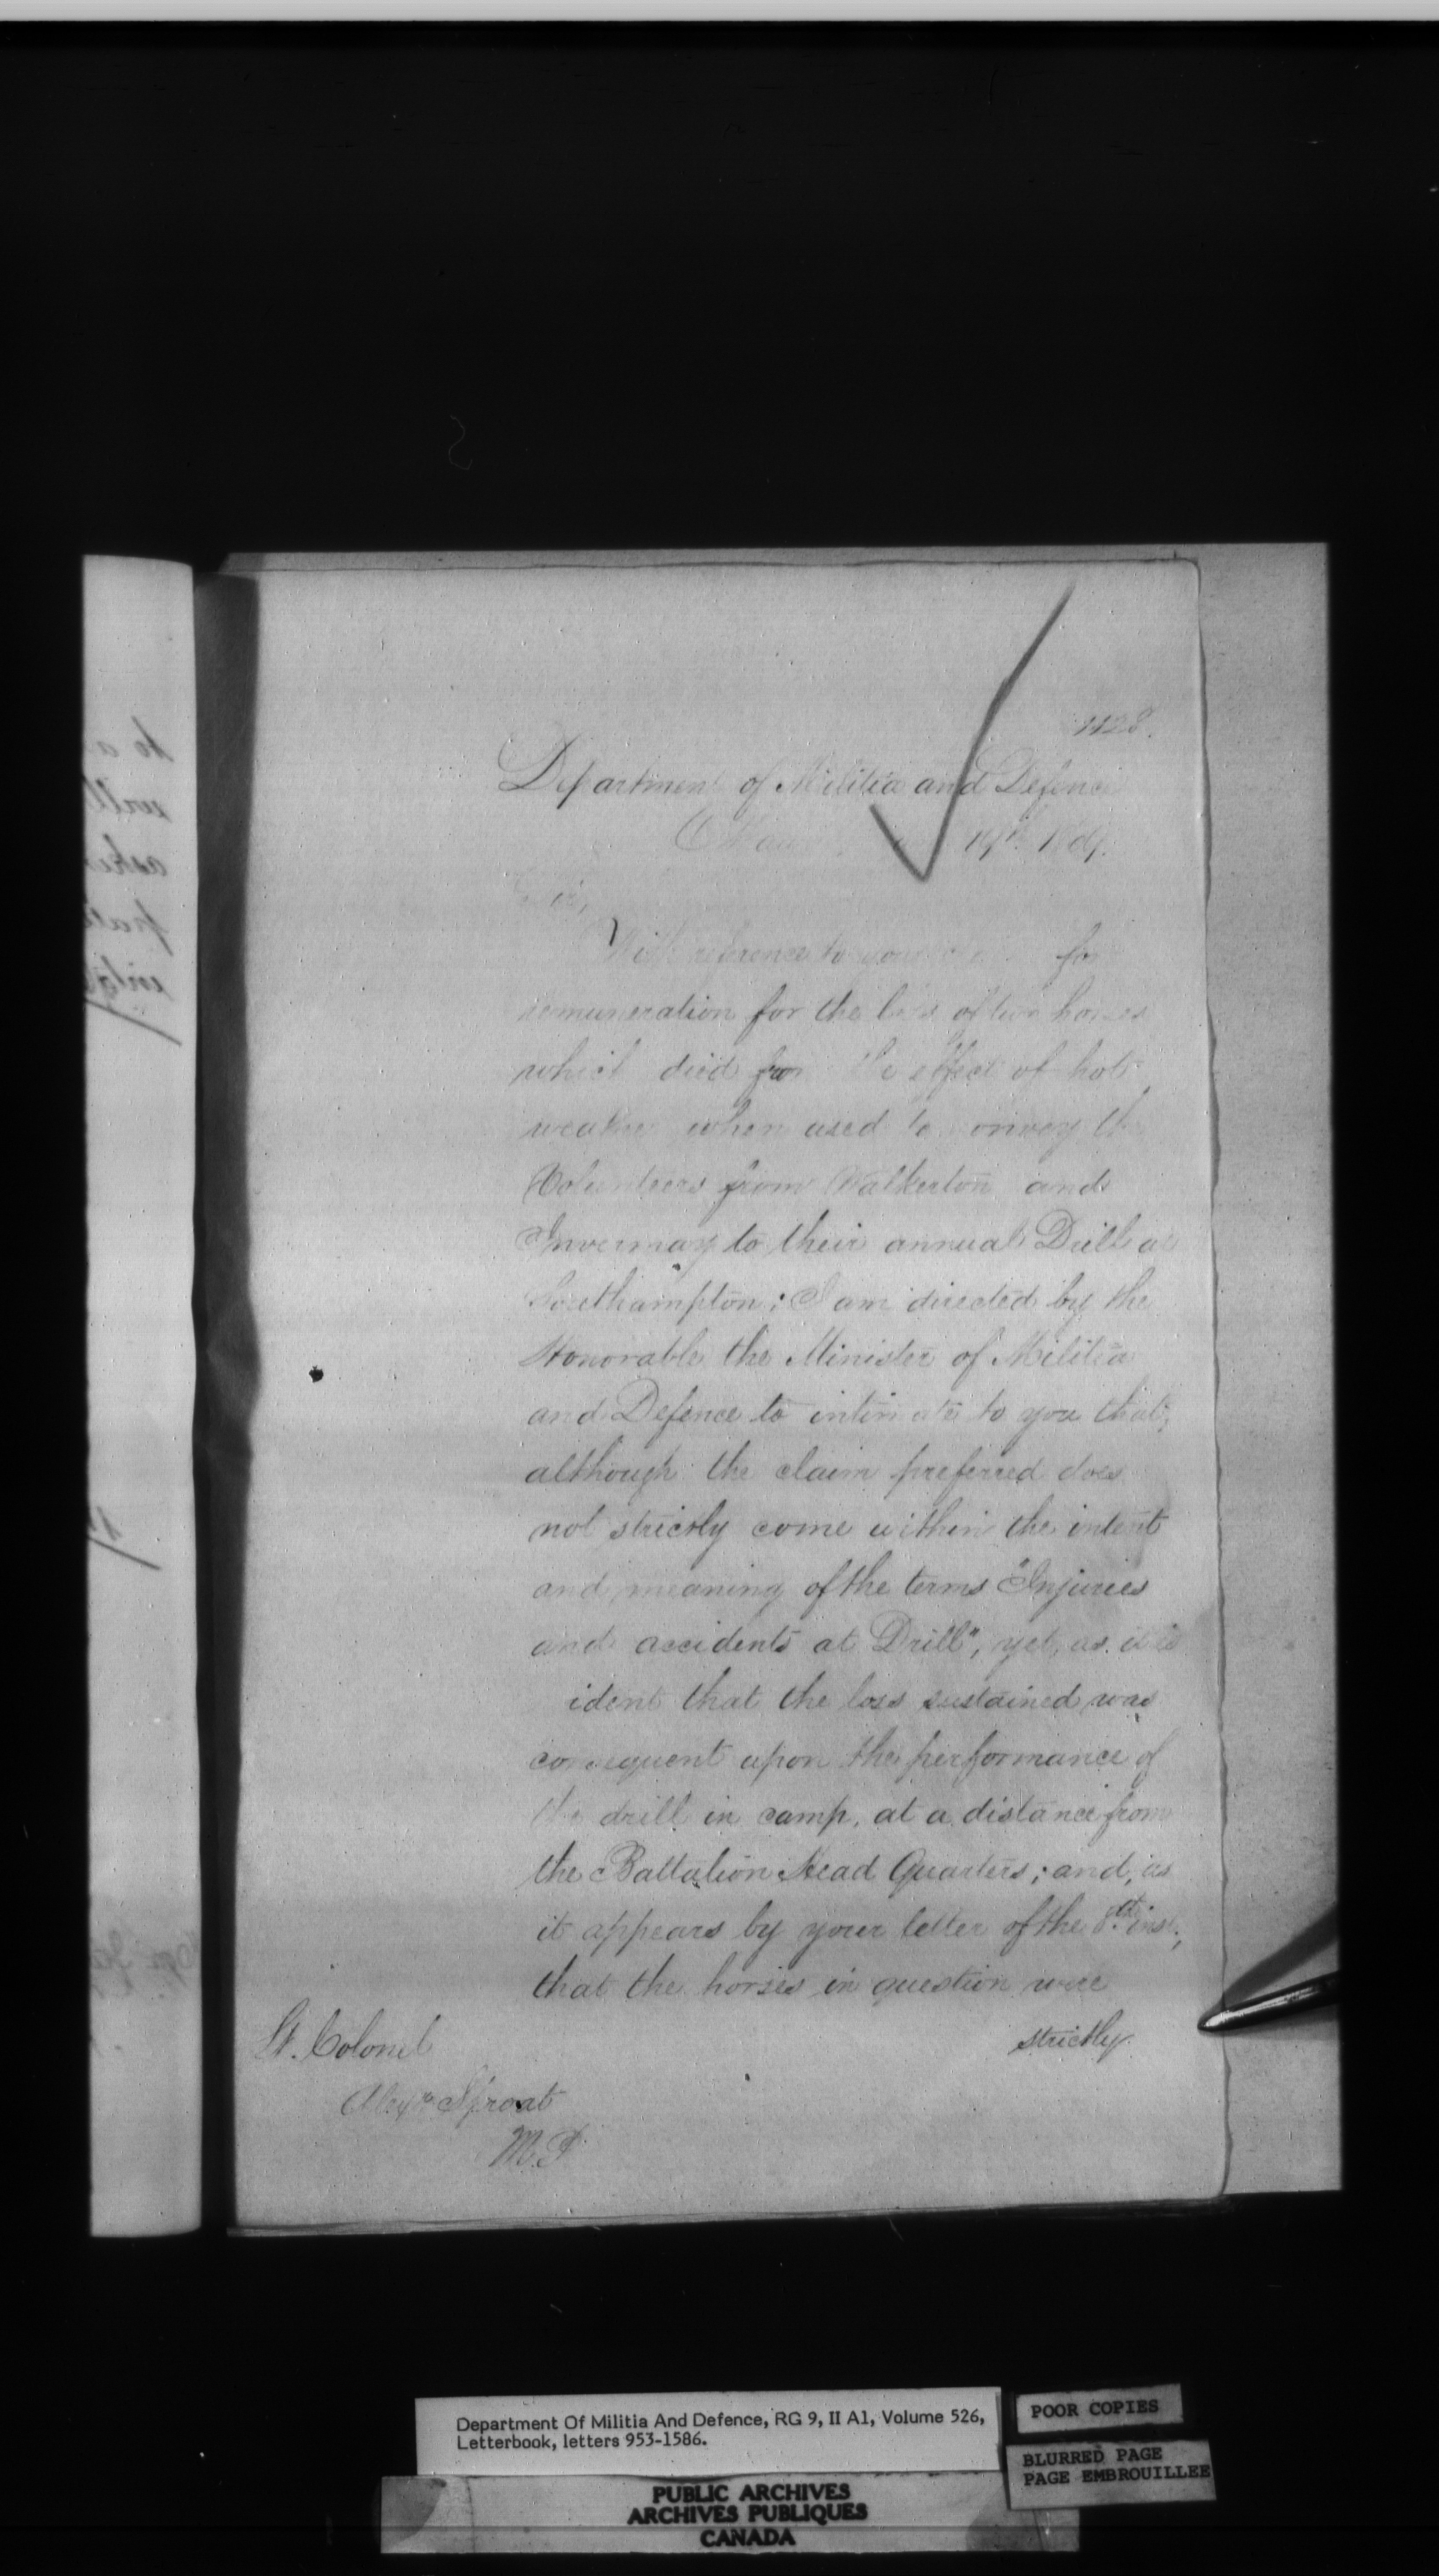 1128.
Department of Militia and Defence
19th 1869.
Sir,
With reference to your for
remuneration for the loss of two horses
which died from the effect of hot
weather when used to convey the
Volunteers from Walkerton and
Invermay to their annual Drill at
Southampton; I am directed by the
Honorable the Minister of Militia
and Defence to intimate to you that,
although the claim preferred does
not strictly come within the intent
and meaning of the terms "Injuries
and accidents at Drill", yet, as it is
ident that the loss sustained was
consequent upon the performance of
the drill in camp, at a distance from
the Battalion Head Quarters; and, as
it appears by your letter of the 8th inst.,
that the horses in question were
strictly
Lt. Colonel
Alexr Sproat
M.P.
Department Of Militia And Defence, RG 9, II A1, Volume 526,
Letterbook, letters 953-1586.
POOR COPIES
BLURRED PAGE
PAGE EMBROUILLEE
PUBLIC ARCHIVES
ARCHIVES PUBLIQUES
CANADA